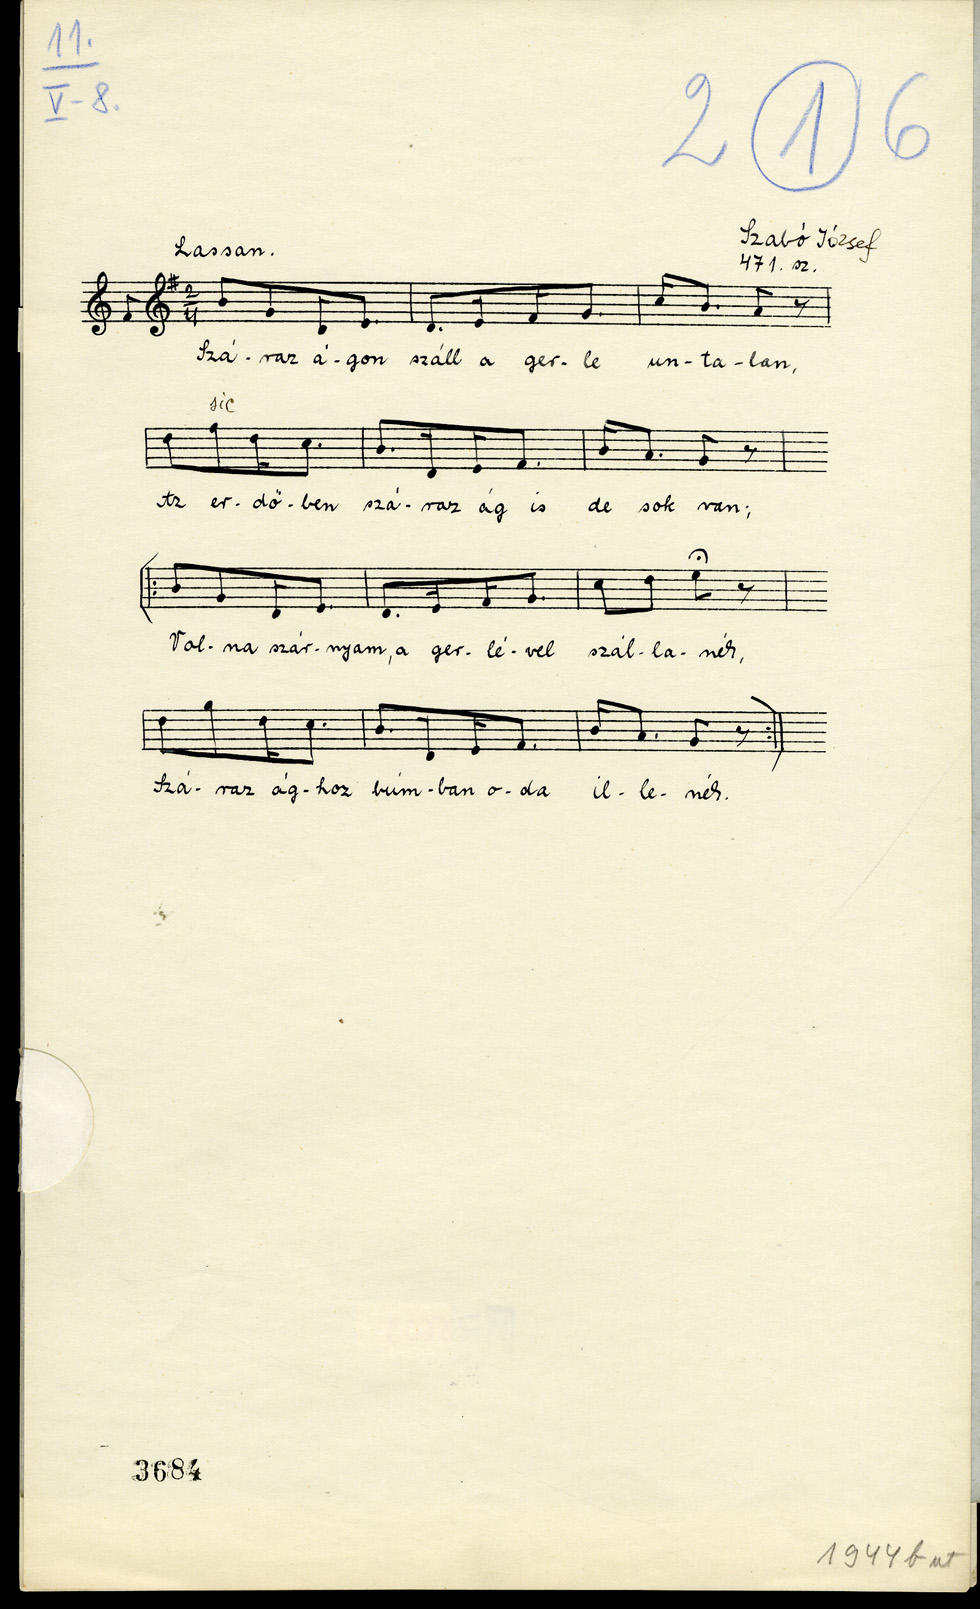 11.
V-8.
2 1 6
Szabó József
471. sz.
Lassan.
2
4
Szá-raz á-gon száll a ger-le un-ta-lan,
sic
Az er-dő-ben szá-raz ág is de sok van;
Vol-na szár-nyam, a ger-lé-vel szál-la-nék,
Szá-raz ág-hoz búm-ban o-da il-le-nék.
3684
1944 b ut